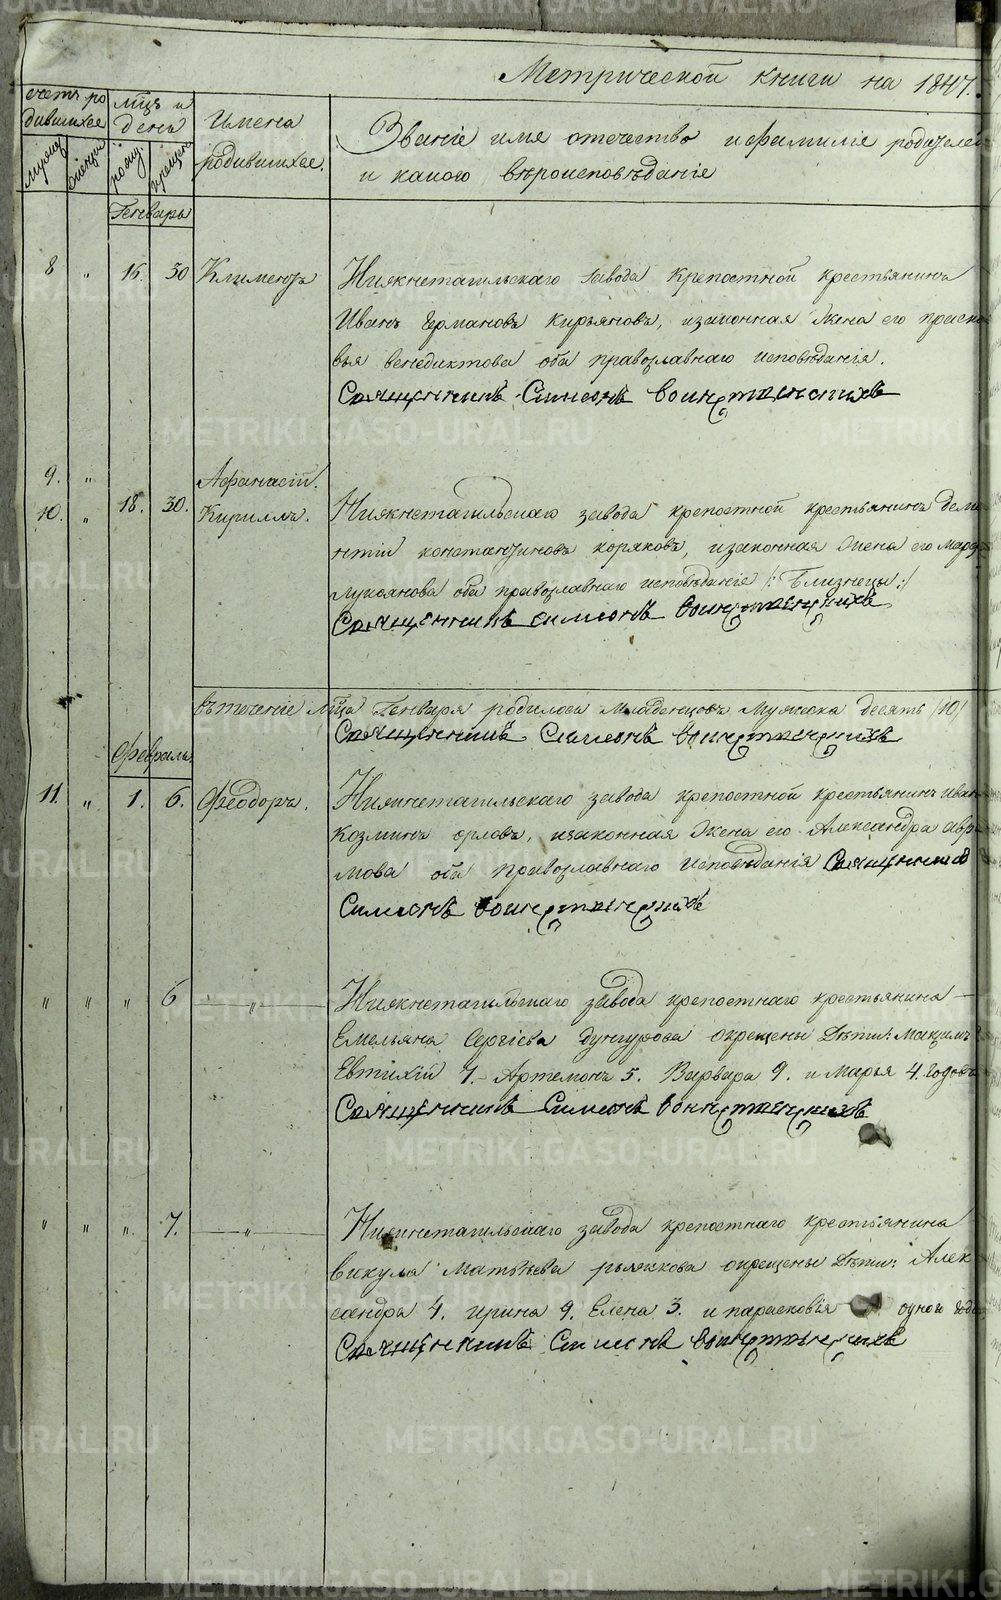 Метрической книги на 1847.
счетъ ро
дившихся
мцъ и
день
Имена
родившихся.
Званіе имя отечество и фамиліе родителей
и какого вѣроисповѣданіе
мужеск
женска
рожд.
крещен
Генварь
8 " 16. 30 Климентъ Нижнетагильскаго завода крепостной крестьянинъ
Иванъ Германовъ Кирьяновъ, изаконная жена его праско
вья венедиктова оба православнаго исповѣданія.
Священникъ Симеонъ воинственскихъ
9. " Афанасій.
10. " 18. 30. Кириллъ. Нижнетагильскаго завода крепостной крестьянинъ деме
нтій константиновъ коряковъ, изаконная жена его Марфа
лукоянова оба православнаго исповѣданіе /: Близнецы :/
Священникъ симеонъ
вътеченіе Мца Генваря родилось Младенцовъ Мужеска десять /10/
Священникъ Симеонъ
Февраль
11. " 1. 6. Феодоръ. Нижнетагильскаго завода крепостной крестьянинъ иван
Козминъ орловъ, изаконная жена его Александра авра
мова оба православнаго исповѣданія Священникъ
Симеонъ
" " " 6 " Нижнетагильскаго завода крепостнаго крестьянина
Емельяна Сергіева окрещены дѣти: Максимъ
Евтихій 7. Артемонъ 5. Варвара 9. и Марья 4. годовъ
Священникъ Симеонъ
" " " 7. " Нижнетагильскаго завода крепостнаго крестьянина
викула Матвѣева окрещены дѣти: Алек
сандра 4. ирина 9. Елена 3. и парасковья одного года
Священникъ Симеонъ
METRIKI.GASO-URAL.RU